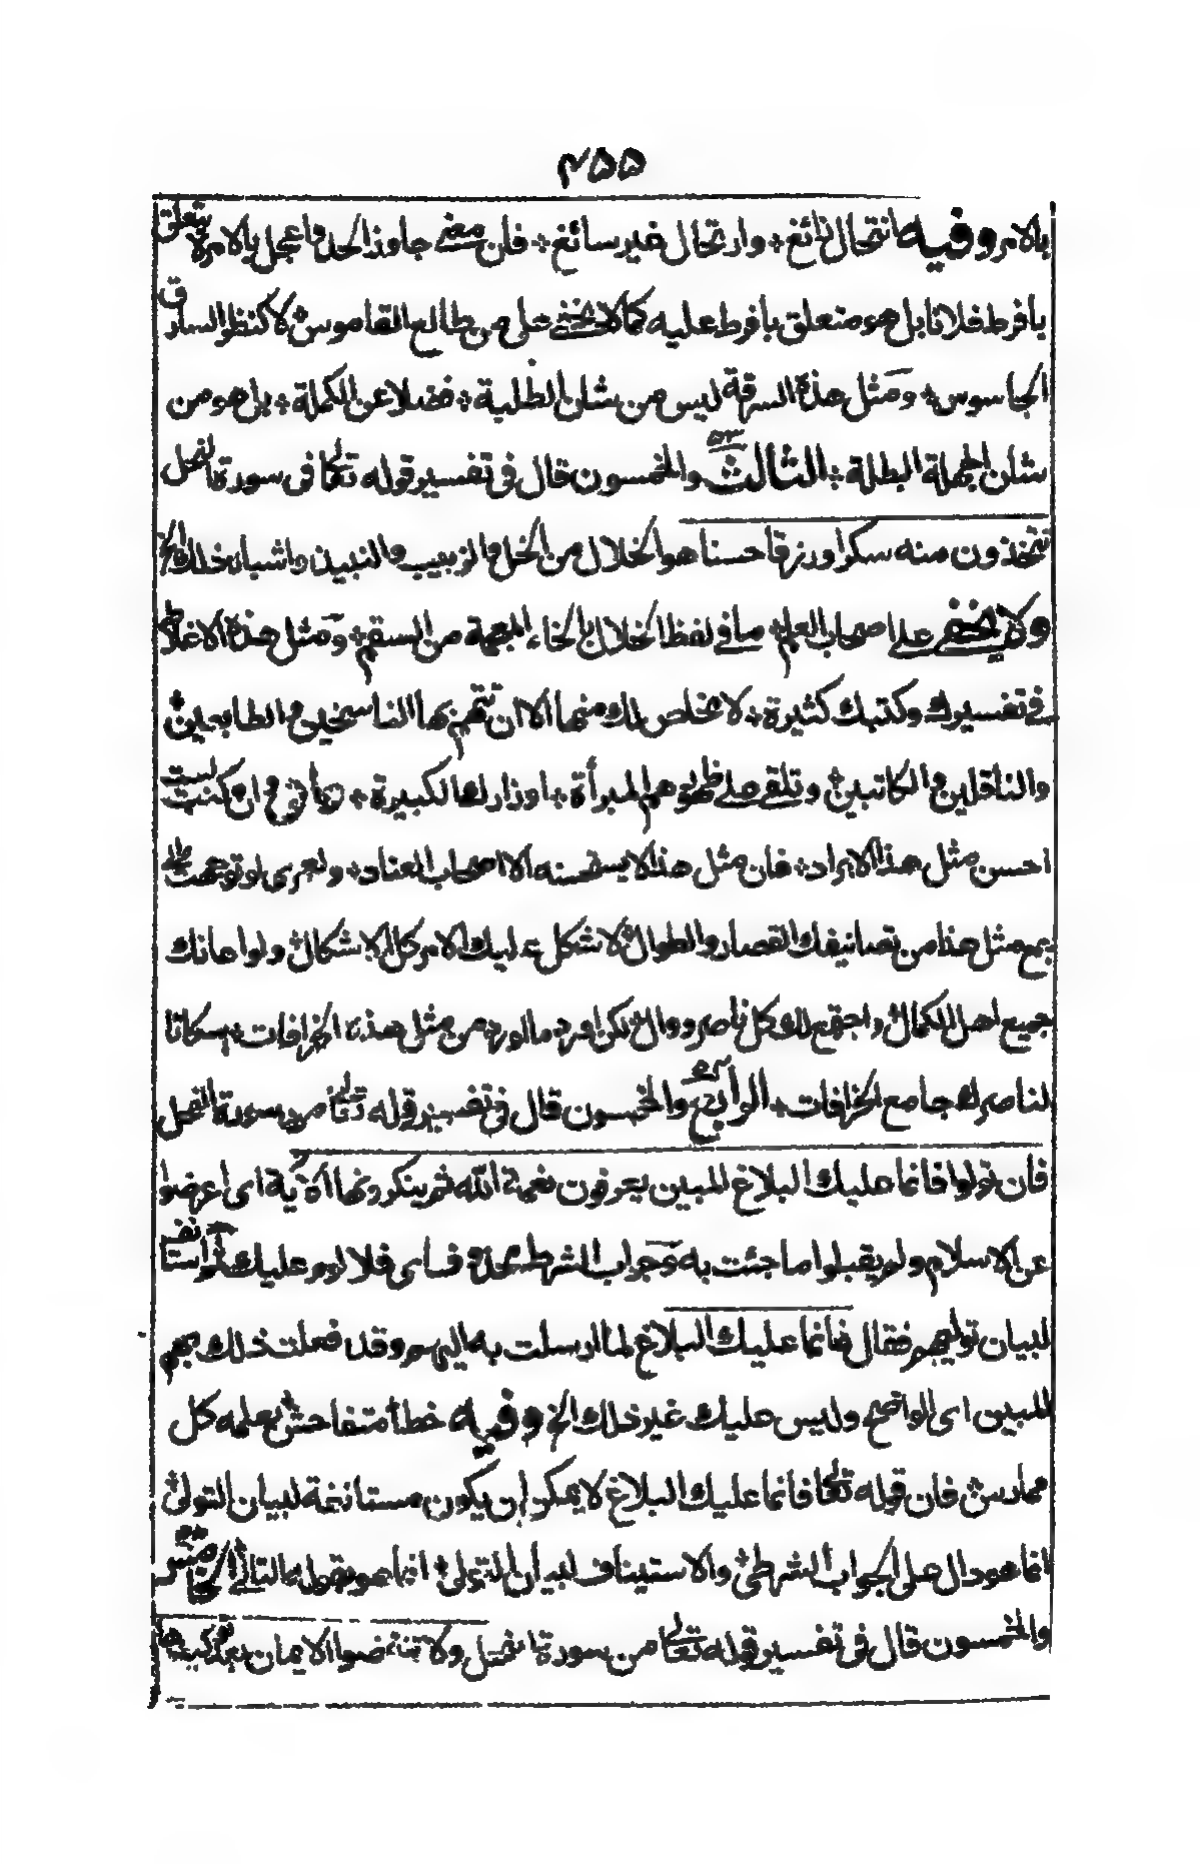 ٢٥٥
بالامر وفيه انتحال زائغ + وارتحال غير سائغ + فان معنى جاوز الحد واعجل بالامر لا يتعلق
بافرط فلانا بل هو متعلق بافرط عليه كما لا يخفى على من طالع القاموس لا كنظر السارق
الجاسوس + ومثل هذه السرقة ليس من شان الطلبة + فضلا عن الكملة + بل هو من
شان الجهلة البطلة + الثالث والخمسون قال فى تفسير قوله تعالى فى سورة النحل
تتخذون منه سكرا ورزقا حسنا هو الخلال من الخل والزبيب والنبيذ واشباه ذلك الخ
ولا يخفى على اصحاب العلم + ما فى لفظ الخلال بالخاء المعجمة من السقم + ومثل هذه الاغلاط
فى تفسيرك وكتبك كثيرة + لا مخلص لك منها الا ان تتهم بها الناسخين والطابعين
والناقلين والكاتبين وتلقى على ظهورهم المبرأة + اوزارها الكبيرة + وان كنت لست
احسن مثل هذا الايراد + فان مثل هذا لا يستحسنه الا اصحاب العناد + ولعمرى لو توجهت الى
جمع مثل هذا من تصانيفك القصار والطوال لاشكل عليك الامر كل الاشكال ولو اعانك
جميع اهل الكمال واجتمع لك كل ناصر ووال لكن اورد ما اورد من مثل هذه الخرافات + اسكاتا
لناصرك جامع الخرافات + الرابع والخمسون قال فى تفسير قوله تعالى من سورة النحل
فان تولوا فانما عليك البلاغ المبين يعرفون نعمة الله ثم ينكرونها الآية اى اعرضوا
عن الاسلام ولم يقبلوا ما جئت به وجواب الشرط محذوف اى فلا لوم عليك واستانف
لبيان توليهم فقال فانما عليك البلاغ لما ارسلت به اليهم وقد فعلت ذلك بهم
المبين اى الواضح وليس عليك غير ذلك الخ وفيه خطأ متفاحش يعلمه كل
ممارس فان قوله تعالى فانما عليك البلاغ لا يمكن ان يكون مستانفة لبيان التولى
انما هو دال على الجواب الشرطى والاستيناف لبيان التولى انما هو بقوله تعالى الخامس
والخمسون قال فى تفسير قوله تعالى من سورة النحل ولا تنقضوا الايمان بعد توكيدها